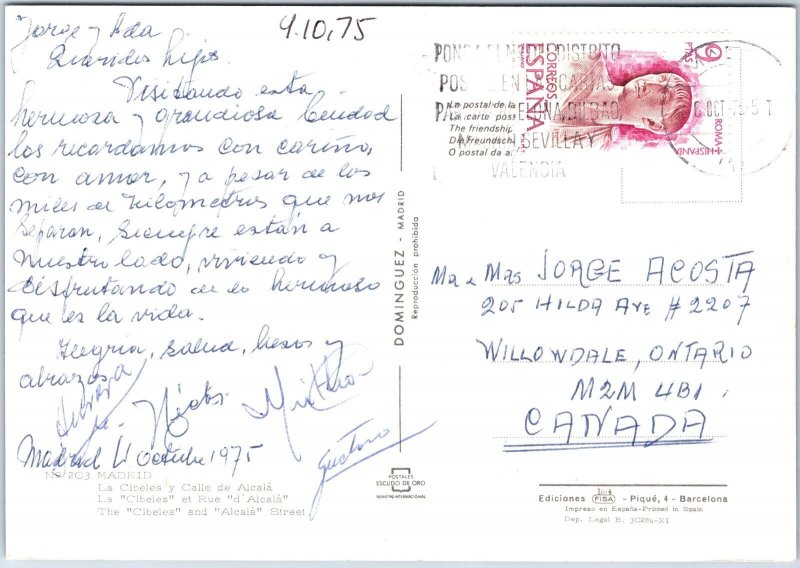 Jorge y Ada
9.10,75
Queridos hijos:
Visitando esta
hermosa y grandiosa ciudad
los recordamos con cariño,
con amor, y a pesar de los
miles de kilometros que nos
separan, siempre están a
nuestro lado, viviendo y
disfrutando de lo hermoso
que es la vida.
Alegria, salud, besos y
abrazos
Héctor
Gustavo
Madrid 4 octubre 1975
No 203 MADRID
La Cibeles y Calle de Alcalá
La "Cibeles" et Rue "d'Alcalá"
The "Cibeles" and "Alcalá" Street
DOMINGUEZ - MADRID
Reproducción prohibida
POSTALES
ESCUDO DE ORO
REGISTRO INTERNACIONAL
PONGA EL DISTRITO
POSTAL EN CARTAS
PARA BILBAO,
SEVILLA Y
VALENCIA
La postal de la
La carte post
The friendship
Die Freundscha
O postal da a
ESPAÑA
CORREOS
9
PTAS
ROMA
+ HISPANIA
OCT
Mr & Mrs JORGE ACOSTA
205 HILDA AVE # 2207
WILLOWDALE, ONTARIO
M2M 4B1
CANADA
Ediciones FISA - Piqué, 4 - Barcelona
Impreso en España-Printed in Spain
Dep. Legal B. 30286-XI